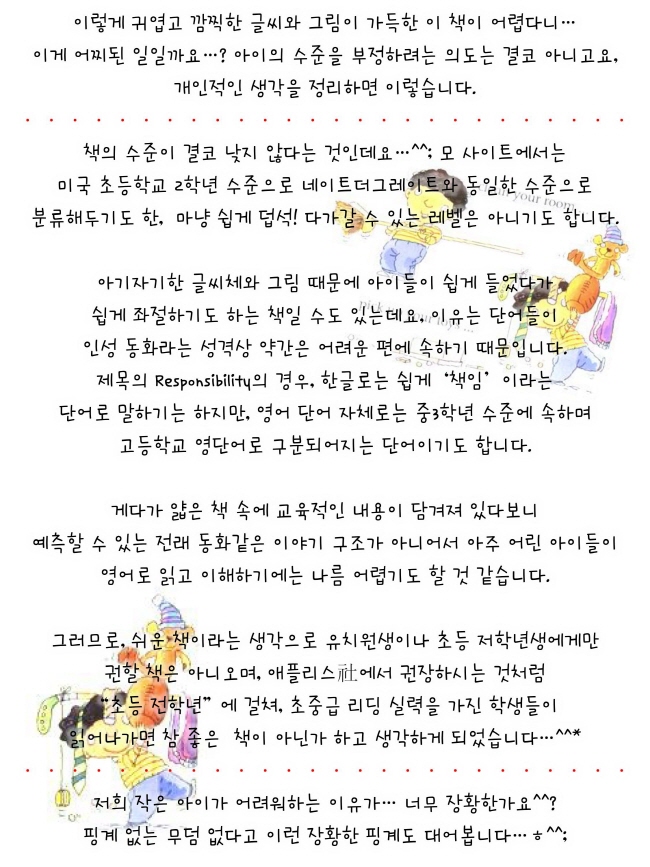 이렇게 귀엽고 깜찍한 글씨와 그림이 가득한 이 책이 어렵다니…
이게 어찌된 일일까요…? 아이의 수준을 부정하려는 의도는 결코 아니고요,
개인적인 생각을 정리하면 이렇습니다.
책의 수준이 결코 낮지 않다는 것인데요…^^; 모 사이트에서는
미국 초등학교 2학년 수준으로 네이트더그레이트와 동일한 수준으로
your room
분류해두기도 한, 마냥 쉽게 덥석! 다가갈 수 있는 레벨은 아니기도 합니다.
아기자기한 글씨체와 그림 때문에 아이들이 쉽게 들었다가
쉽게 좌절하기도 하는 책일 수도 있는데요, 이유는 단어들이
인성 동화라는 성격상 약간은 어려운 편에 속하기 때문입니다.
제목의 Responsibility의 경우, 한글로는 쉽게 ‘책임’ 이라는
단어로 말하기는 하지만, 영어 단어 자체로는 중3학년 수준에 속하며
고등학교 영단어로 구분되어지는 단어이기도 합니다.
게다가 얇은 책 속에 교육적인 내용이 담겨져 있다보니
예측할 수 있는 전래 동화같은 이야기 구조가 아니어서 아주 어린 아이들이
영어로 읽고 이해하기에는 나름 어렵기도 할 것 같습니다.
그러므로, 쉬운 책이라는 생각으로 유치원생이나 초등 저학년생에게만
권할 책은 아니오며, 애플리스社에서 권장하시는 것처럼
“초등 전학년” 에 걸쳐, 초중급 리딩 실력을 가진 학생들이
읽어나가면 참 좋은 책이 아닌가 하고 생각하게 되었습니다…^^*
저희 작은 아이가 어려워하는 이유가… 너무 장황한가요^^?
핑계 없는 무덤 없다고 이런 장황한 핑계도 대어봅니다…ㅎ^^;